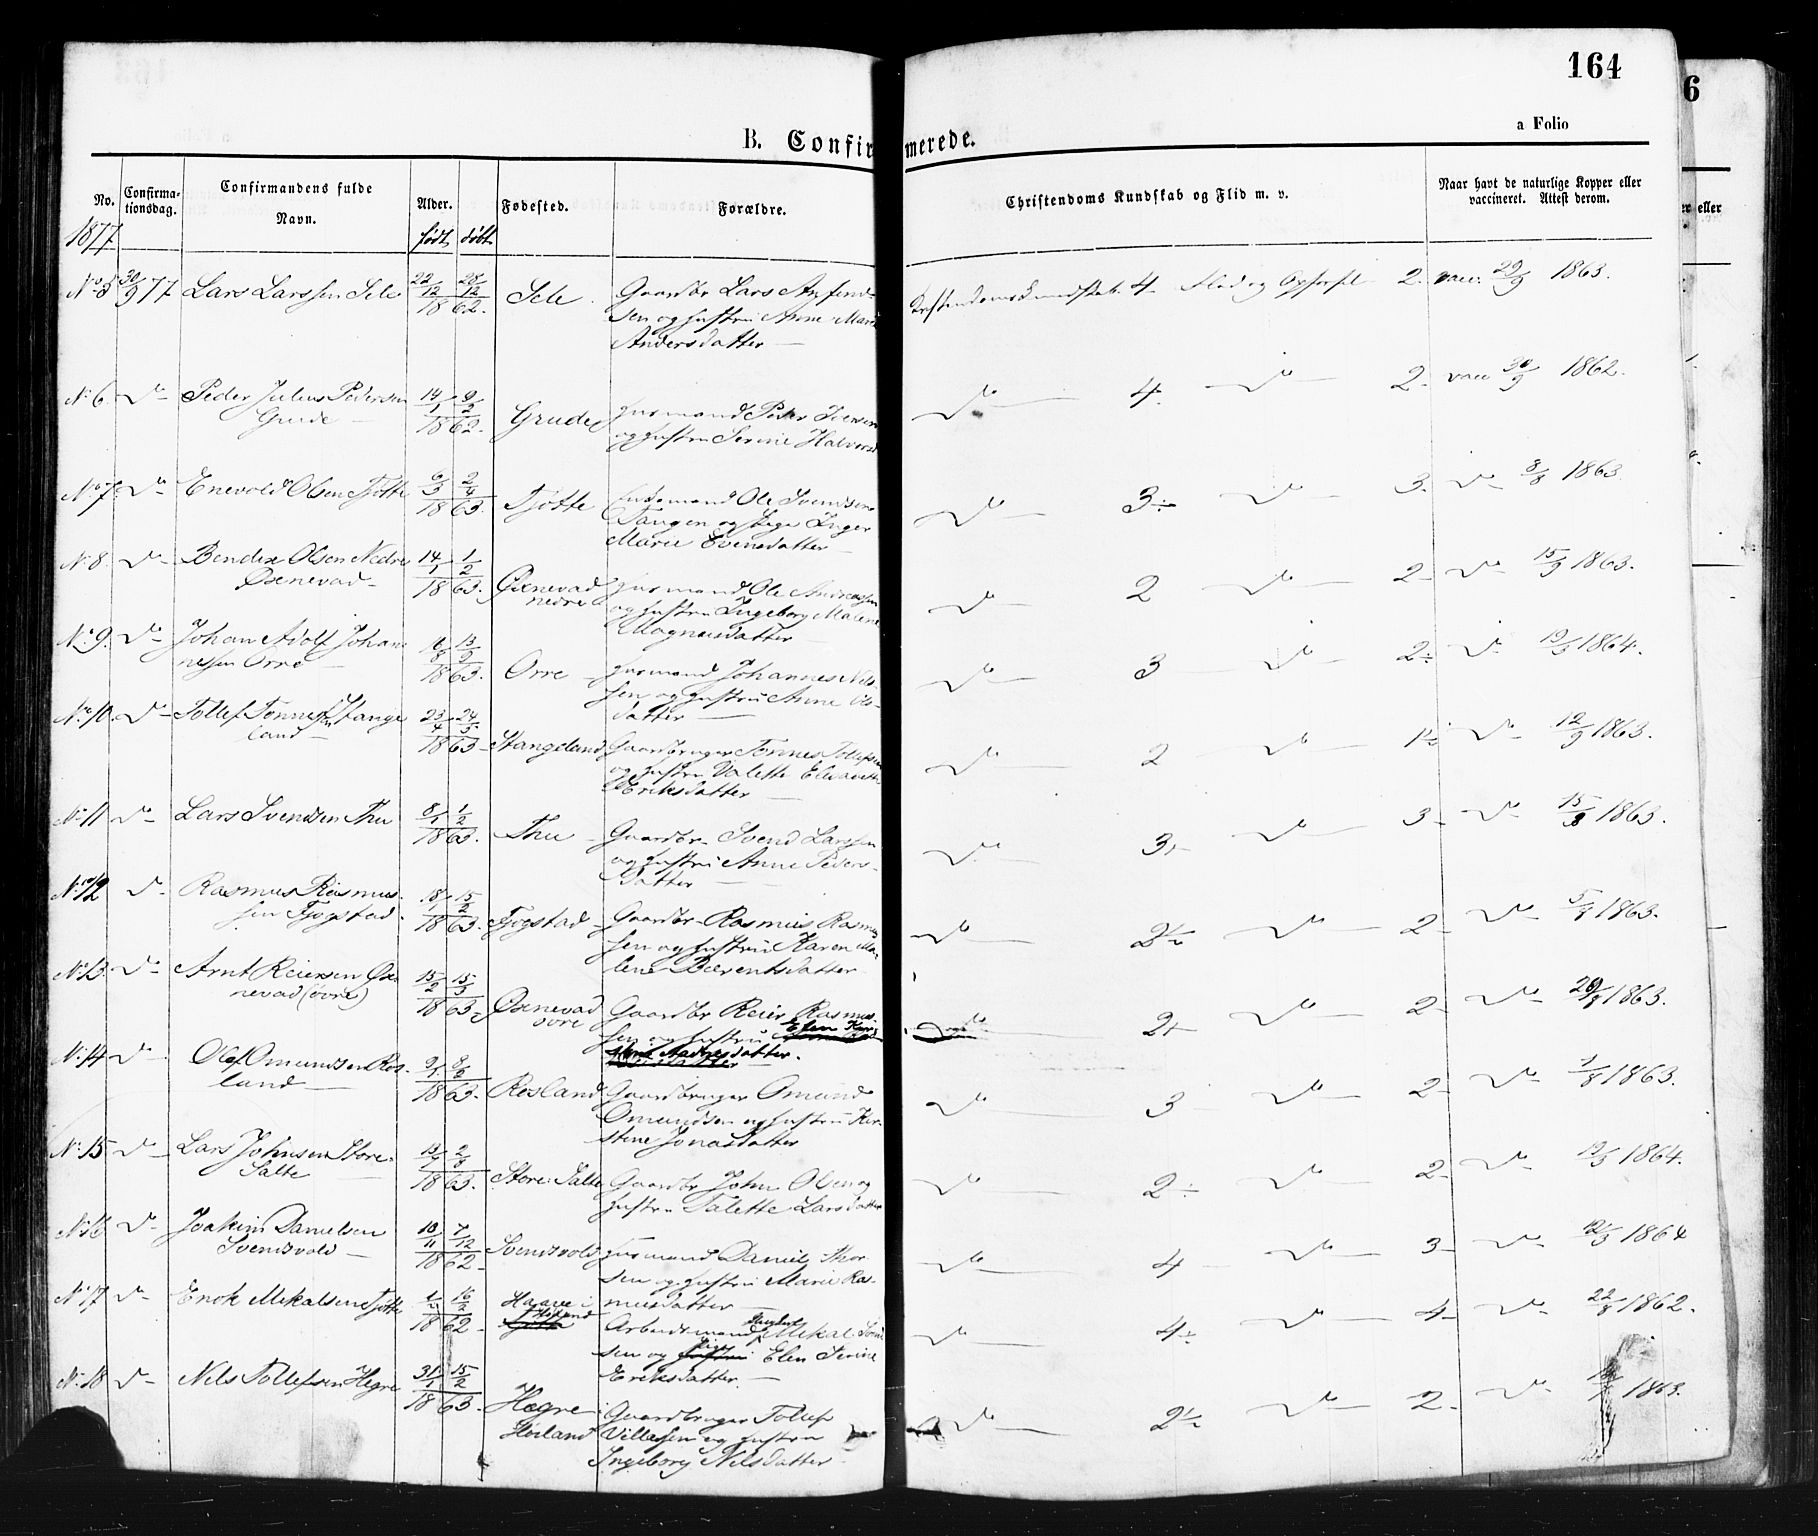 164
6
a Folio
B. Confirmerede.
No. Confirma-tionsdag. Confirmandens fulde Navn. Alder. Fødested. Forældre. Christendoms Kundskab og Flid m. v. Naar havt de naturlige Kopper eller vaccineret. Attest derom.
er eller
1877 født døbt
No 5 30/9 77 Lars Larssen Sele 22/12 28/12 1862. Sele. Gaardbr Lars
sen og hustru Anne Marie
Andersdatter —
Kristendomskundskab. 4 — Flid og Opførsel — 2. vacc. 29/9 1863.
No 6. do Peder Julius Pedersen
Grude —
14/1 9/2 1862. Grude Husmand Peder Iversen
og hustru Serine Halvorsd
do 4. do 2 vacc 30/9 1862.
No 7 do Enevold Olsen Tjøtte 6/3 2/4 1863. Tjøtte Husmand Ole Svendsen
Tangen og Inger
Marie Evensdatter —
do 3÷ do 3. do 8/8 1863
No 8 do Bendix Olsen Nedre
Øxnevad —
14/1 1/2 1863. Øxnevad
nedre
Husmand Ole Andreassen
og hustru Ingeborg Malene
Magnusdatter —
do 2 do 2 do 15/9 1863.
No 9. do Johan Adolf Johan
nessen Orre —
16/8 13/9 1863. Orre — Husmand Johannes Nils-
sen og hustru Anne Ols-
datter —
do 3 do 2÷ do 19/3 1864.
No 10. do Tollef Tønnessen Stange
land —
23/4 24/5 1863 — Stangeland Gaardbruger Tønnes Tollefsen
og hustru Valette Elisabeth
Eriksdatter —
do 2 do 1½ do 12/9 1863.
No 11 do Lars Svendsen Thu 8/1 1/2 1863. Thu — Gaardbr. Svend Larssen
og hustru Anne Peders-
datter —
do 3 do 3 — do 15/8 1863.
No 12 do Rasmus Rasmus-
sen Tjøgstad.
18/1 15/2 1863. Tjøgstad — Gaardbr. Rasmus Rasmus
sen og hustru Karen Ma-
lene Bærentsdatter
do 2½ do 2 — do 5/8 1863.
No 13. do Arnt Reiersen Øx-
nevad (øvre)
15/2 15/3 1863 Øxnevad
øvre
Gaardbr Reier Rasmus-
sen og hustru Elen Kir
stine Andreasdatter.
do 2 do 2 — do 20/8 1863.
No 14 do Olaf Omundsen Ros-
land —
9/1 8/2 1863. Rosland Gaardbruger Omund
Omundsen og hustru Kir-
stine Jonasdatter
do 3 do 2 — do 1/8 1863.
No 15 do Lars Johnsen Store-
Salte —
2/8 1863. Store-Salte Gaardbr John Olsen og
hustru Talette Larsdatter
do 2÷ do 2 — do 19/3 1864.
No 16 do Joakim Danielsen
Svendsvold —
10/11 7/12 1862 — Svendsvold Husmand Daniel Thor
sen og hustru Marie Ras-
musdatter —
do 4 do 3 — do 12/3 1864
No 17 do Enok Mikalsen Tjøtte 16/2 1862 — Haave i
Høiland
Arbeidsmand Mikal
sen og Elen Serine
Eriksdatter. —
do 4÷ do 4 — do 22/8 1862.
No 18 do Nils Tollefsen Hegre 31/1 15/2 1863. Hegre
Høiland
Gaardbruger Tollef
Villassen og hustru
Ingeborg Nilsdatter —
do 2½ do 2 — do 1863.